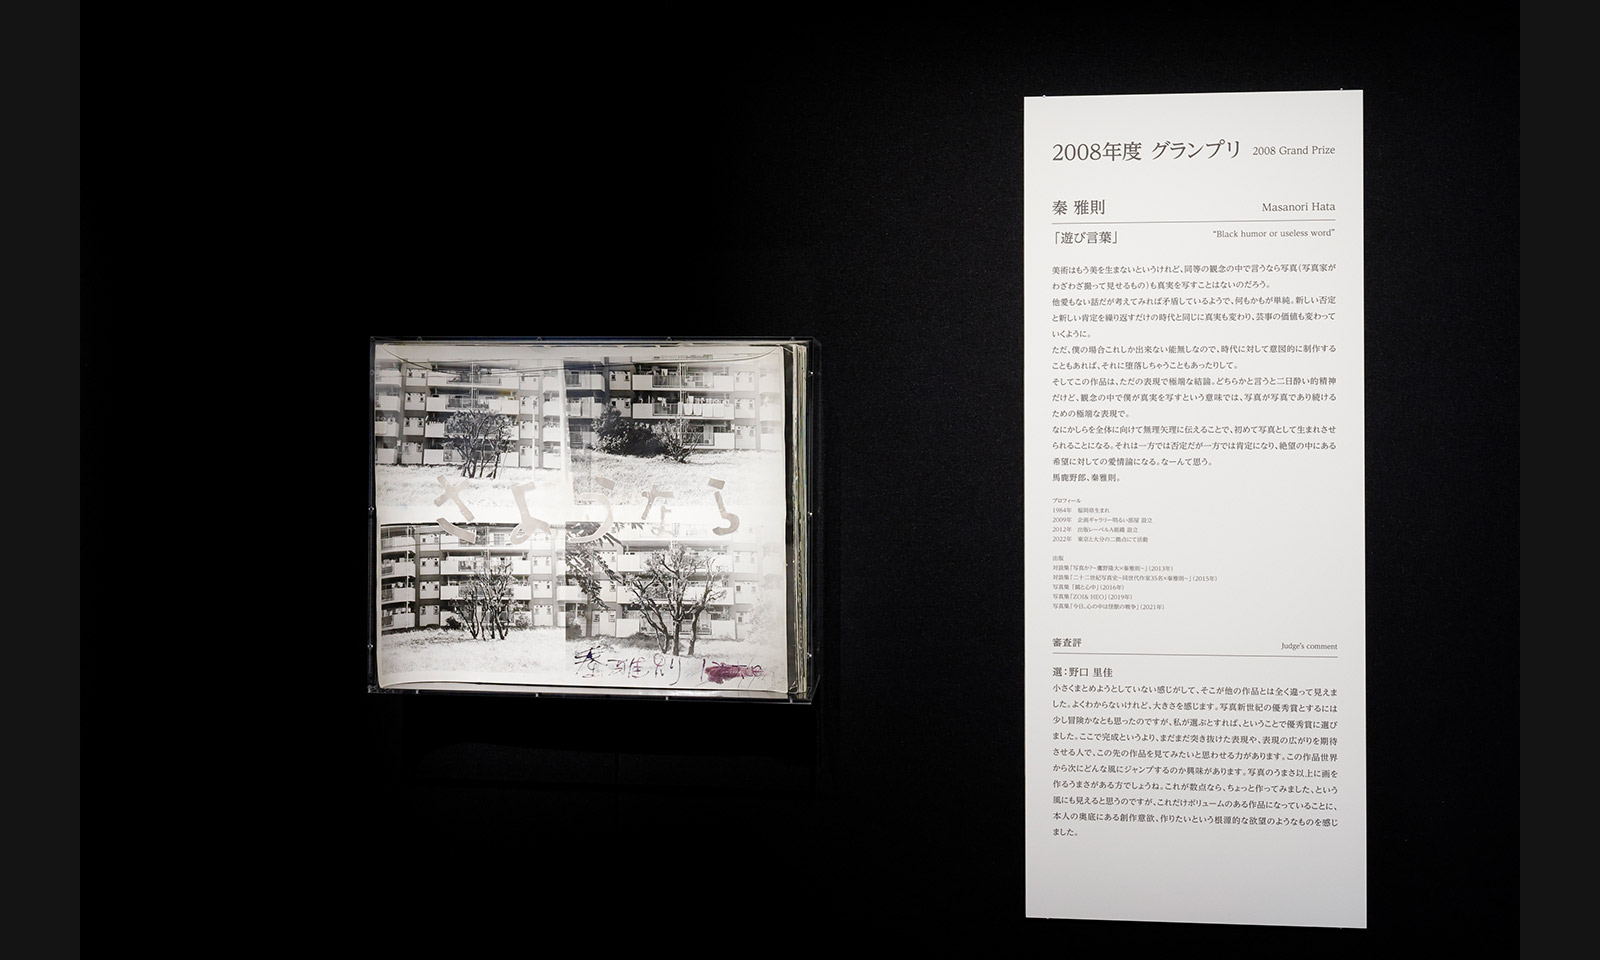 さようなら
秦雅則
2008年度 グランプリ 2008 Grand Prize
秦 雅則 Masanori Hata
「遊び言葉」 “Black humor or useless word”
美術はもう美を生まないというけれど、同等の観念の中で言うなら写真(写真家が
わざわざ撮って見せるもの)も真実を写すことはないのだろう。
他愛もない話だが考えてみれば矛盾しているようで、何もかもが単純。新しい否定
と新しい肯定を繰り返すだけの時代と同じに真実も変わり、芸事の価値も変わって
いくように。
ただ、僕の場合これしか出来ない能無しなので、時代に対して意図的に制作する
こともあれば、それに堕落しちゃうこともあったりして。
そしてこの作品は、ただの表現で極端な結論。どちらかと言うと二日酔い的精神
だけど、観念の中で僕が真実を写すという意味では、写真が写真であり続ける
ための極端な表現で。
なにかしらを全体に向けて無理矢理に伝えることで、初めて写真として生まれさせ
られることになる。それは一方では否定だが一方では肯定になり、絶望の中にある
希望に対しての愛情論になる。なーんて思う。
馬鹿野郎、秦雅則。
プロフィール
1984年 福岡県生まれ
2009年 企画ギャラリー明るい部屋 設立
2012年 出版レーベルA組織 設立
2022年 東京と大分の二拠点にて活動
出版
対談集『写真か?~鷹野隆大×秦雅則~』(2013年)
対談集『二十二世紀写真史~同世代作家35名×秦雅則~』(2015年)
写真集『鏡と心中』(2016年)
写真集『ZOI& HEO』(2019年)
写真集『今日、心の中は怪獣の戦争』(2021年)
審査評 Judge's comment
選:野口 里佳
小さくまとめようとしていない感じがして、そこが他の作品とは全く違って見えま
した。よくわからないけれど、大きさを感じます。写真新世紀の優秀賞とするには
少し冒険かなとも思ったのですが、私が選ぶとすれば、ということで優秀賞に選び
ました。ここで完成というより、まだまだ突き抜けた表現や、表現の広がりを期待
させる人で、この先の作品を見てみたいと思わせる力があります。この作品世界
から次にどんな風にジャンプするのか興味があります。写真のうまさ以上に画を
作るうまさがある方でしょうね。これが数点なら、ちょっと作ってみました、という
風にも見えると思うのですが、これだけボリュームのある作品になっていることに、
本人の奥底にある創作意欲、作りたいという根源的な欲望のようなものを感じ
ました。